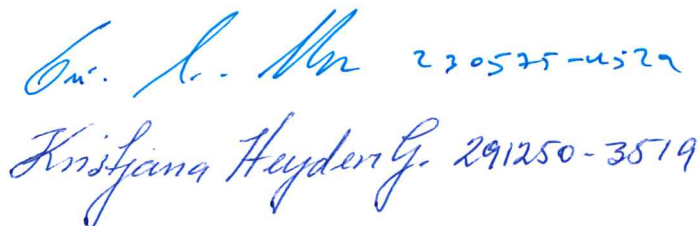 230575-4529
Kristjana Heyden G. 291250-3519